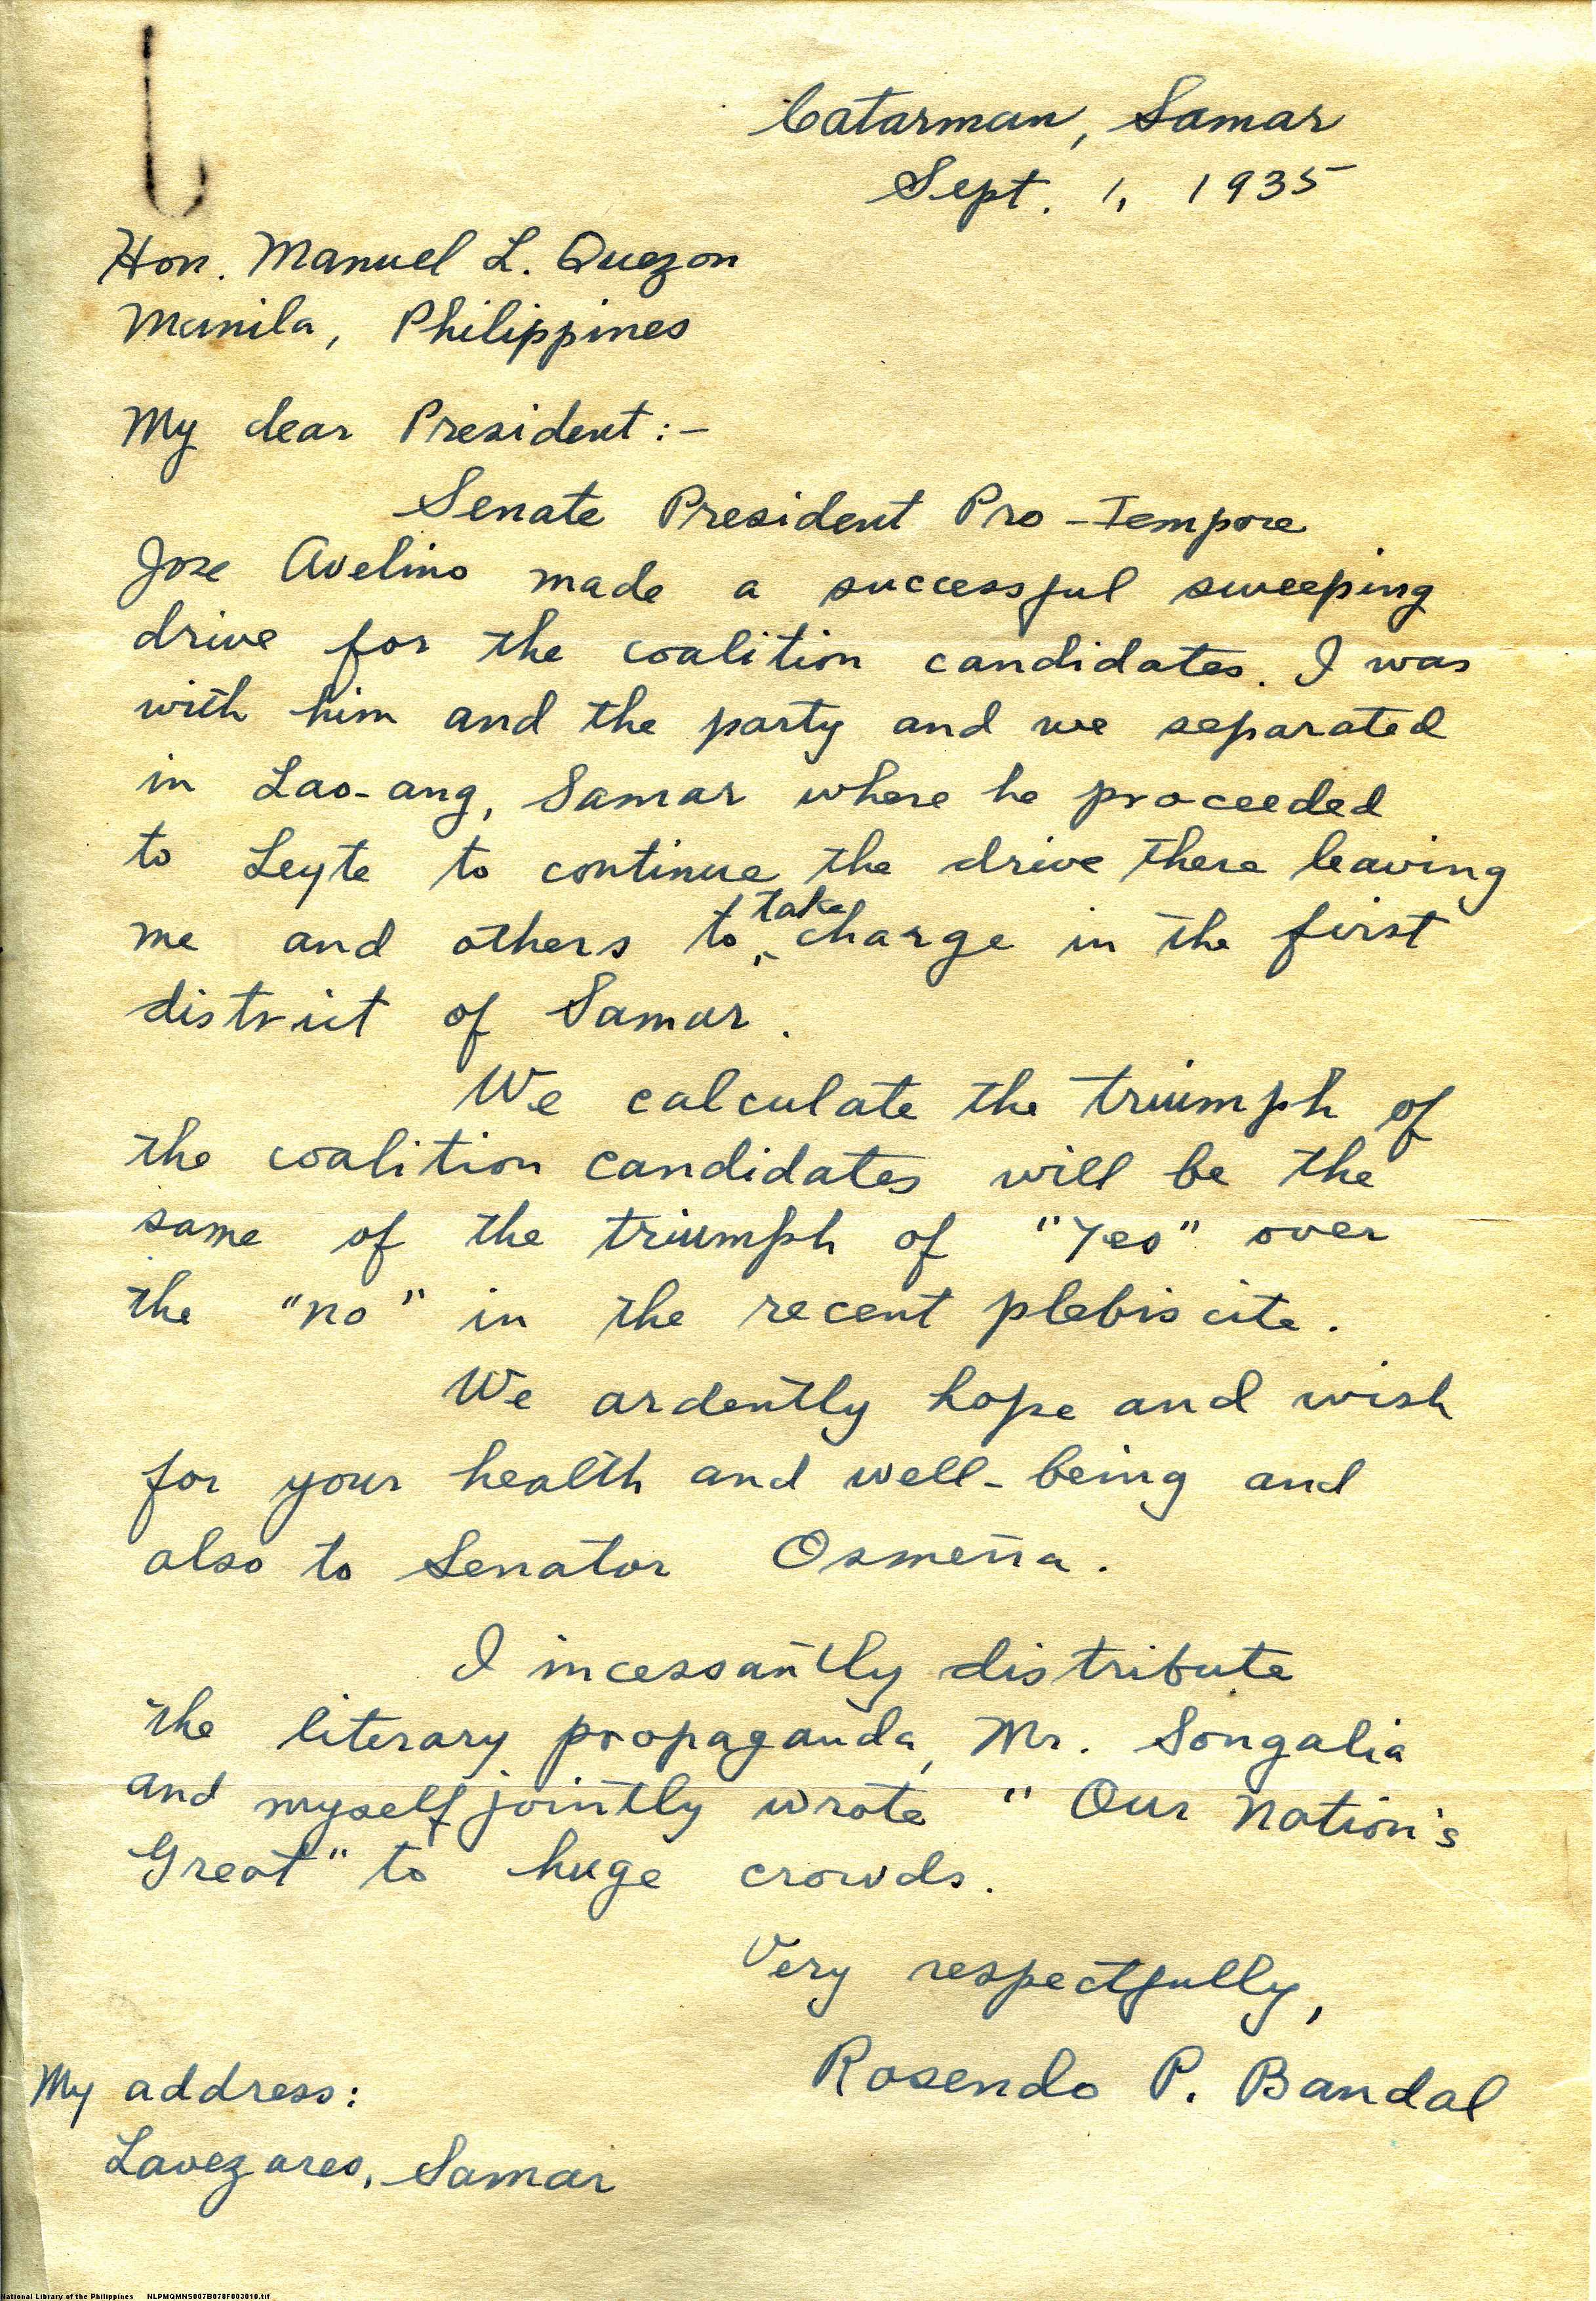 Catarman, Samar
Sept. 1, 1935
Hon. Manuel L. Quezon
Manila, Philippines
My dear President:-
Senate President Pro-Tempore
Jose Avelino made a successful sweeping
drive for the coalition candidates. I was
with him and the party and we separated
in Lao-ang, Samar where he proceeded
to Leyte to continue the drive there leaving
me and others to take charge in the first
district of Samar.
We calculate the triumph of
the coalition candidates will be the
same of the triumph of "Yes" over
the "no" in the recent plebiscite.
We ardently hope and wish
for your health and well-being and
also to Senator Osmeña.
I incessantly distribute
the literary propaganda, Mr. Songalia
and myself jointly wrote "Our Nation's
Great" to huge crowds.
Very respectfully,
Rosendo P. Bandal
My address:
Lavezares, Samar
National Library of the Philippines NLPMQMNS007B078F003010.tif